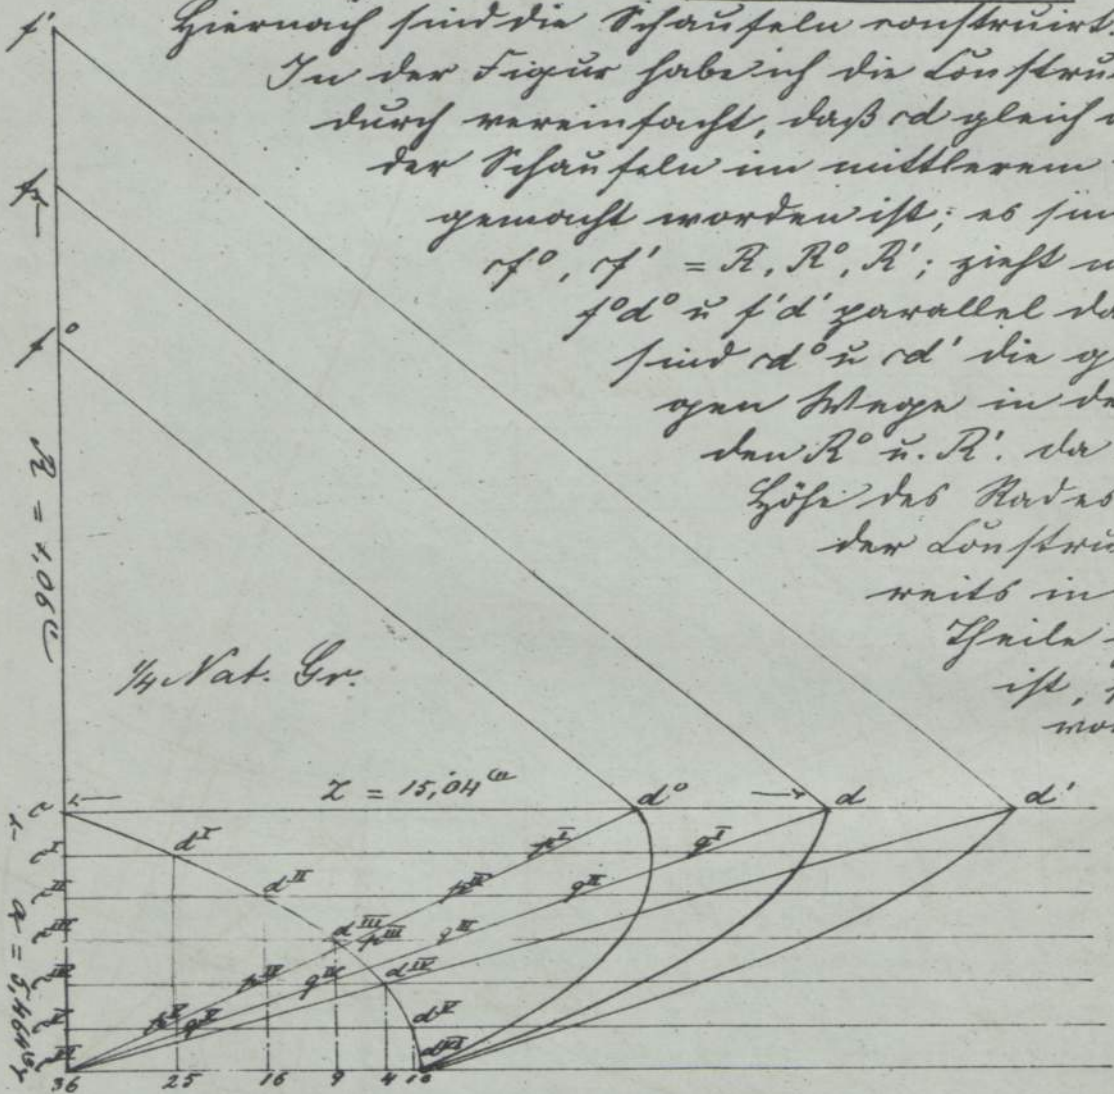 Hiernach sind die Schaufeln construirt.
In der Figur habe ich die Constru
durch vereinfacht, daß cd gleich
der Schaufeln im mittlerem
gemacht worden ist; es sin
cf⁰, cf' = R, R⁰, R'; zieht
f⁰d⁰ u f'd' parallel da
sind cd⁰ u cd' die g
gen Wege in de
den R⁰ u. R'. da
Höhe des Rades
der Constru
reits in
Theile
ist,
wor
f'
f
f⁰
¼ Nat. Gr.
c
Z = 15,04
d⁰
d
d'
c^I
d^I
p^I
q^I
c^II
d^II
p^II
q^II
c^III
d^III
p^III
q^III
c^IV
p^IV
q^IV
d^IV
c^V
p^V
q^V
d^V
c^VI
d^VI
36 25 16 9 4 1 0